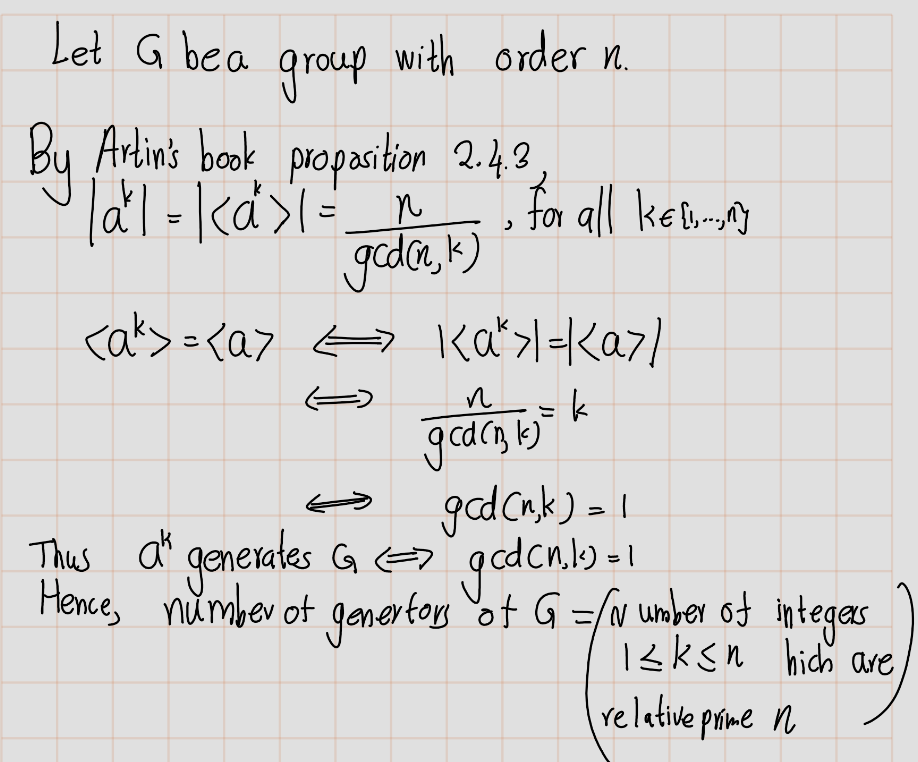 Let G be a group with order n.
By Artin's book proposition 2.4.3,
|a^k| = |<a^k>| = n/gcd(n, k) , for all k ∈ {1,...,n}
<a^k> = <a> ⟺ |<a^k>| = |<a>|
⟺ n/gcd(n, k) = k
⟺ gcd(n,k) = 1
Thus a^k generates G ⟺ gcd(n,k) = 1
Hence, number of genertors of G = (Number of integers
1 ≤ k ≤ n hich are
relative prime n)